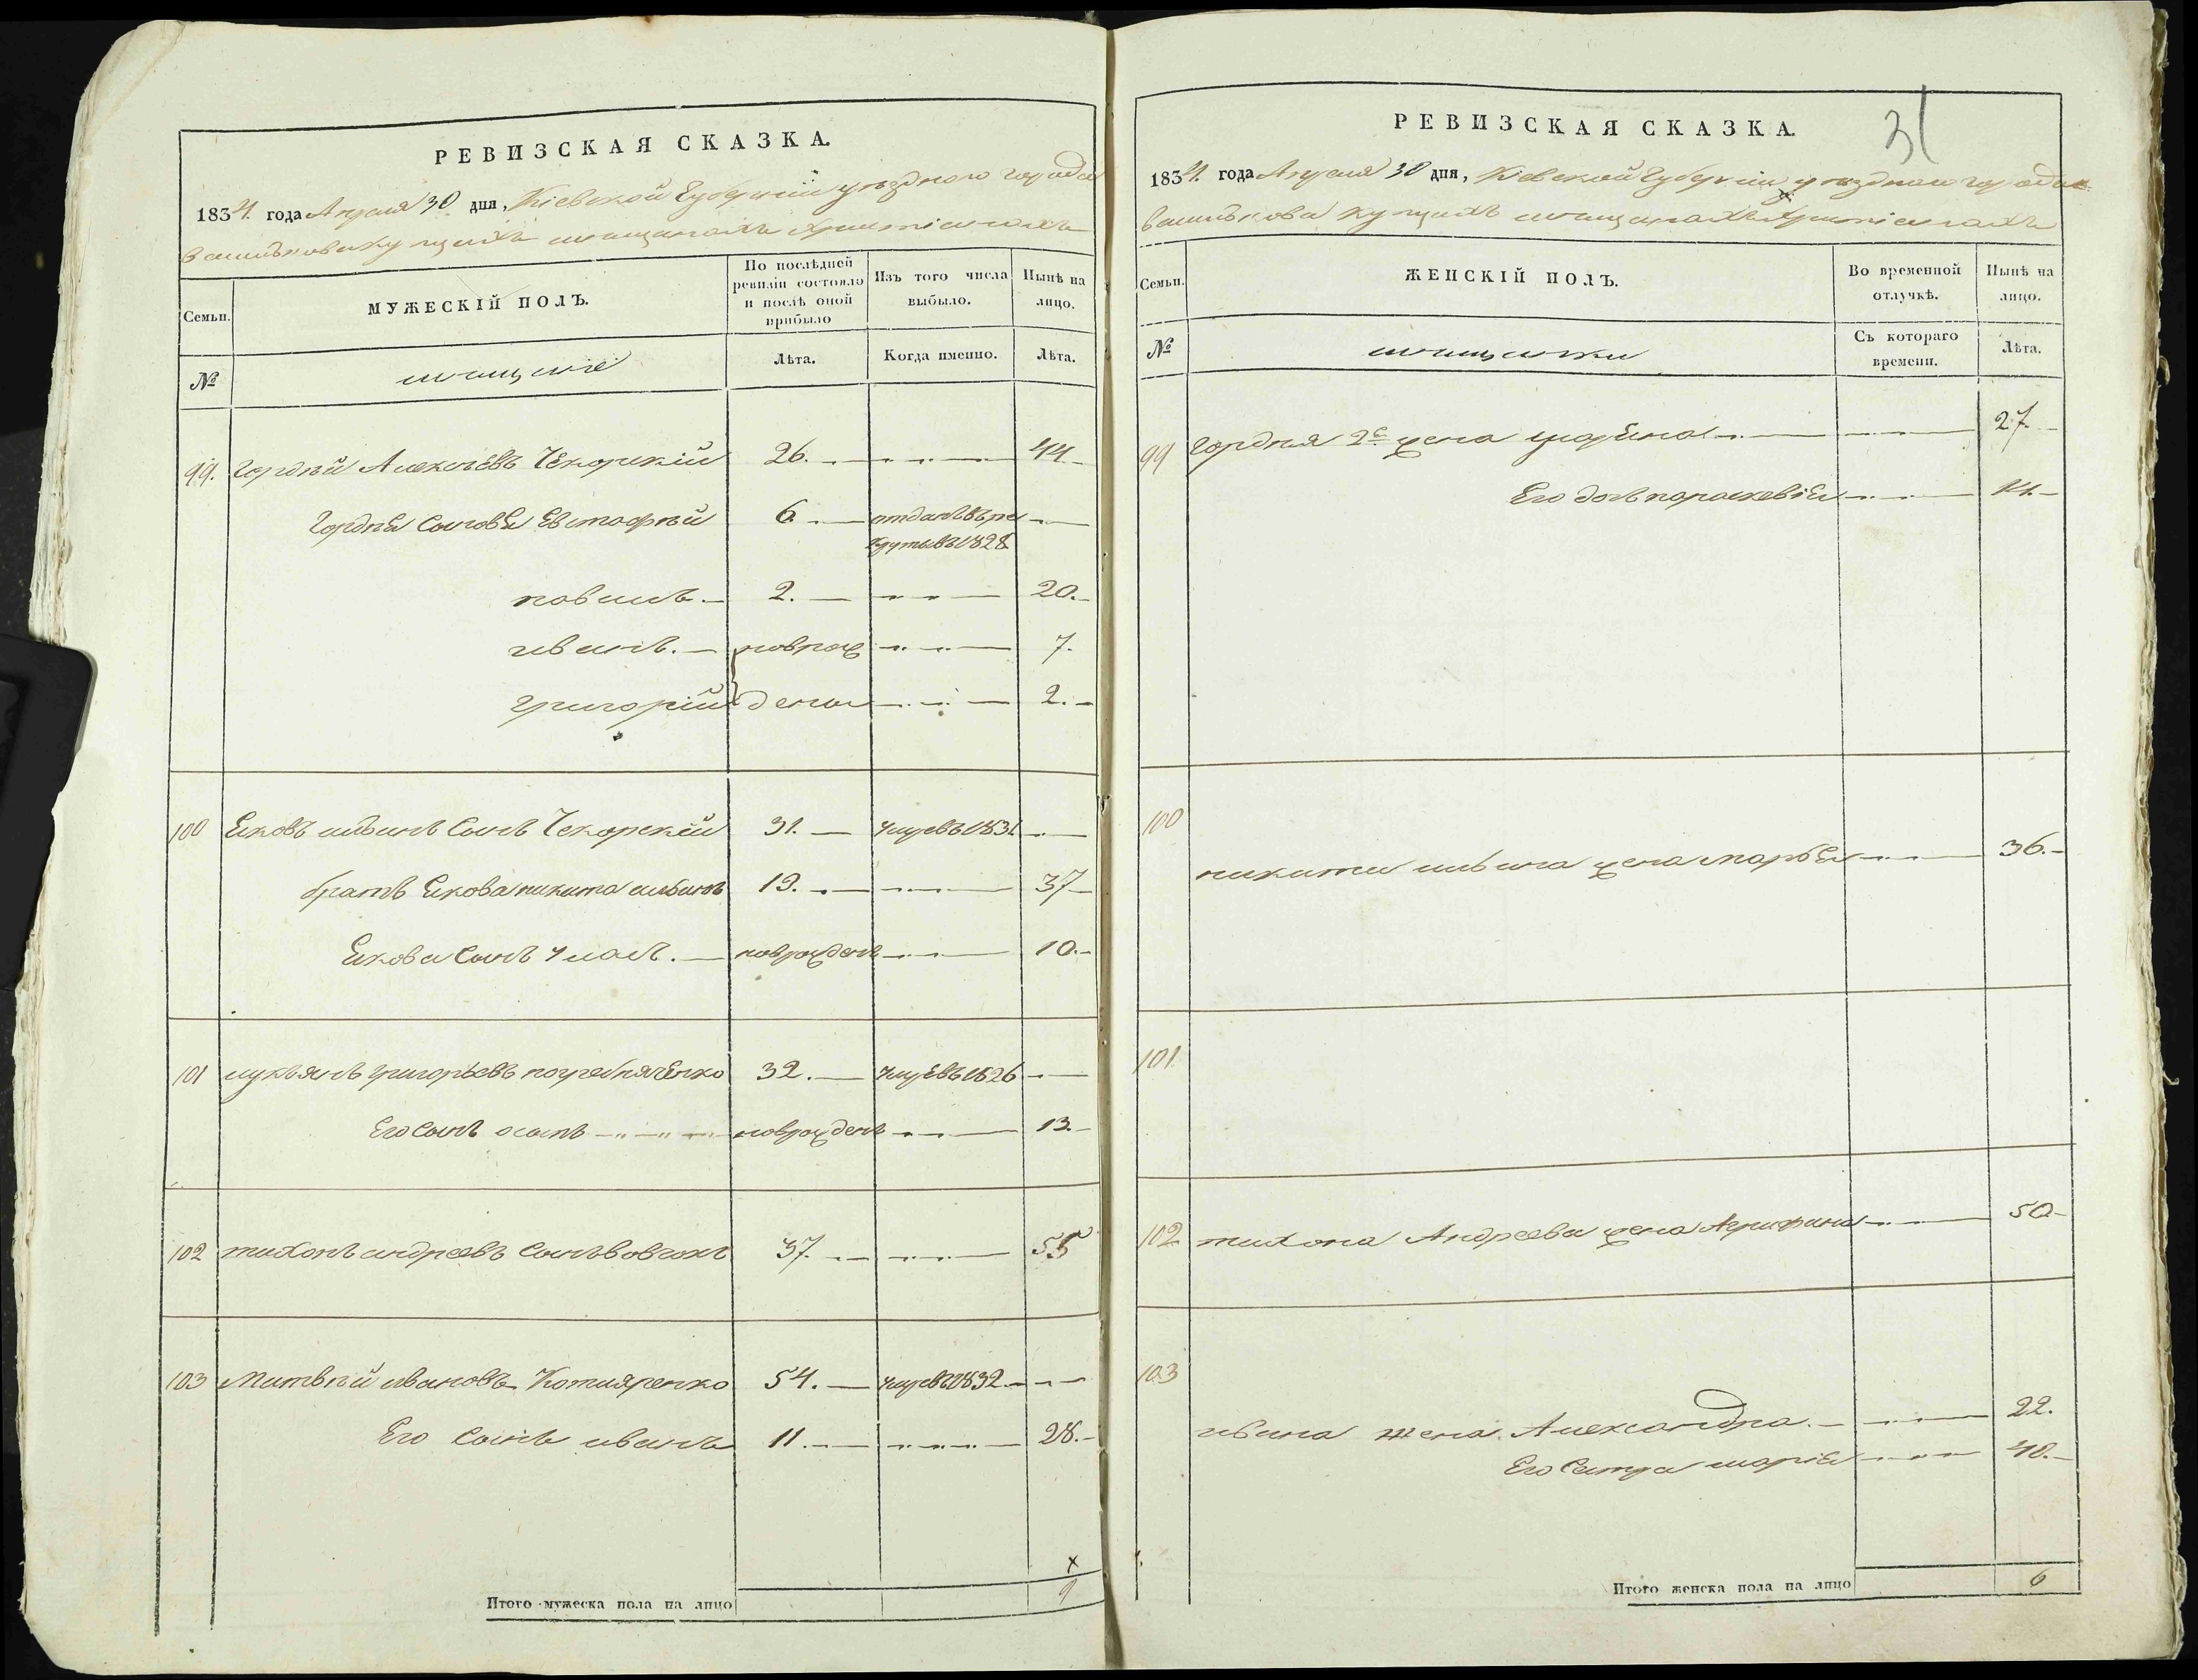 РЕВИЗСКАЯ СКАЗКА.
1834. года Апреля 30 дня, Кіевской Губерніи уѣзднаго города
Василькова купцахъ мещанахъ христіанахъ
Семьи.
МУЖЕСКІЙ ПОЛЪ.
По послѣдней ревизіи состояло и послѣ оной прибыло
Изъ того числа выбыло.
Нынѣ на лицо.
№
мещане
Лѣта.
Когда именно.
Лѣта.
99. Гордѣй Алексѣевъ Чекорскій 26. 44
Гордѣя сыновья Евстафѣй 6. отданъ въ ре
круты въ 1828
павелъ. 2. 20.
иванъ. новрож 7.
григорій дены 2.
100 Яковъ ильинъ сынъ Чекорскій 31. умре въ 1831
братъ Якова никита ильинъ 19. 37
Якова сынъ новрожденъ 10.
101 лукъянъ григорьевъ погребняченко 32. умре въ 1826
Его сынъ осипъ новрожденъ 13.
102 тихонъ андреевъ сынъ вовчокъ 37. 55
103 Матвѣй ивановъ Котляренко 54. умре въ 1832
Его сынъ иванъ 11. 28.
Итого мужеска пола на лицо 9
31
РЕВИЗСКАЯ СКАЗКА.
1834. года Апреля 30 дня, Кіевской Губерніи уѣзднаго города
Василькова купцахъ мещанахъ христіанахъ
Семьи.
ЖЕНСКІЙ ПОЛЪ.
Во временной отлучкѣ.
Нынѣ на лицо.
№
мещанки
Съ котораго времени.
Лѣта.
99 Гордѣя 2я жена 27.
Его дочь параскевія 14.
100
никиты ильина жена марья 36.
101.
102 тихона Андреева жена Агрифина 50
103
ивана жена Александра. 22.
Его сестра марія 40.
Итого женска пола на лицо 6